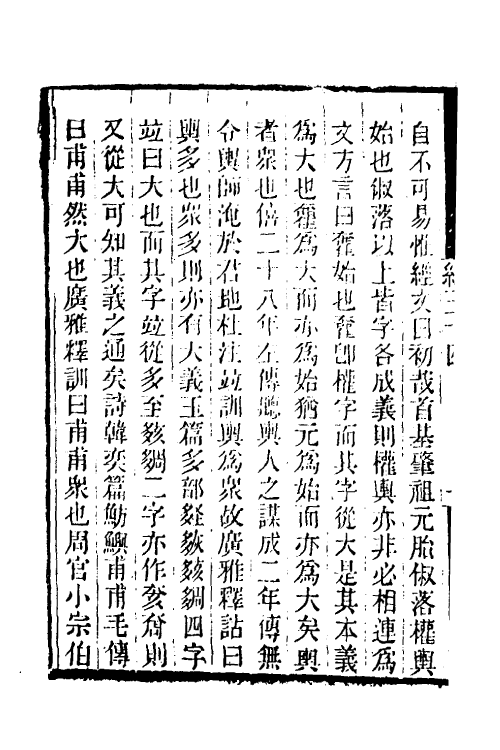 自不可易惟經文曰初哉首基肇祖元胎俶落權輿
始也俶落以上皆字各成義則權輿亦非必相連爲
文方言曰䪻始也䪻卽權字而其字從大是其本義
爲大也䪻爲大而亦爲始猶元爲始而亦爲大矣輿
者衆也僖二十八年左傳聽輿人之謀成二年傳無
令輿師淹於君地杜注竝訓輿爲衆故廣雅釋詁曰
輿多也衆多則亦有大義玉篇多部𡖂𡖤㚊㚋四字
竝曰大也而其字竝從多至㚊㚋二字亦作奒奝則
又從大可知其義之通矣詩韓奕篇魴鱮甫甫毛傳
曰甫甫然大也廣雅釋訓曰甫甫衆也周官小宗伯
經二十四